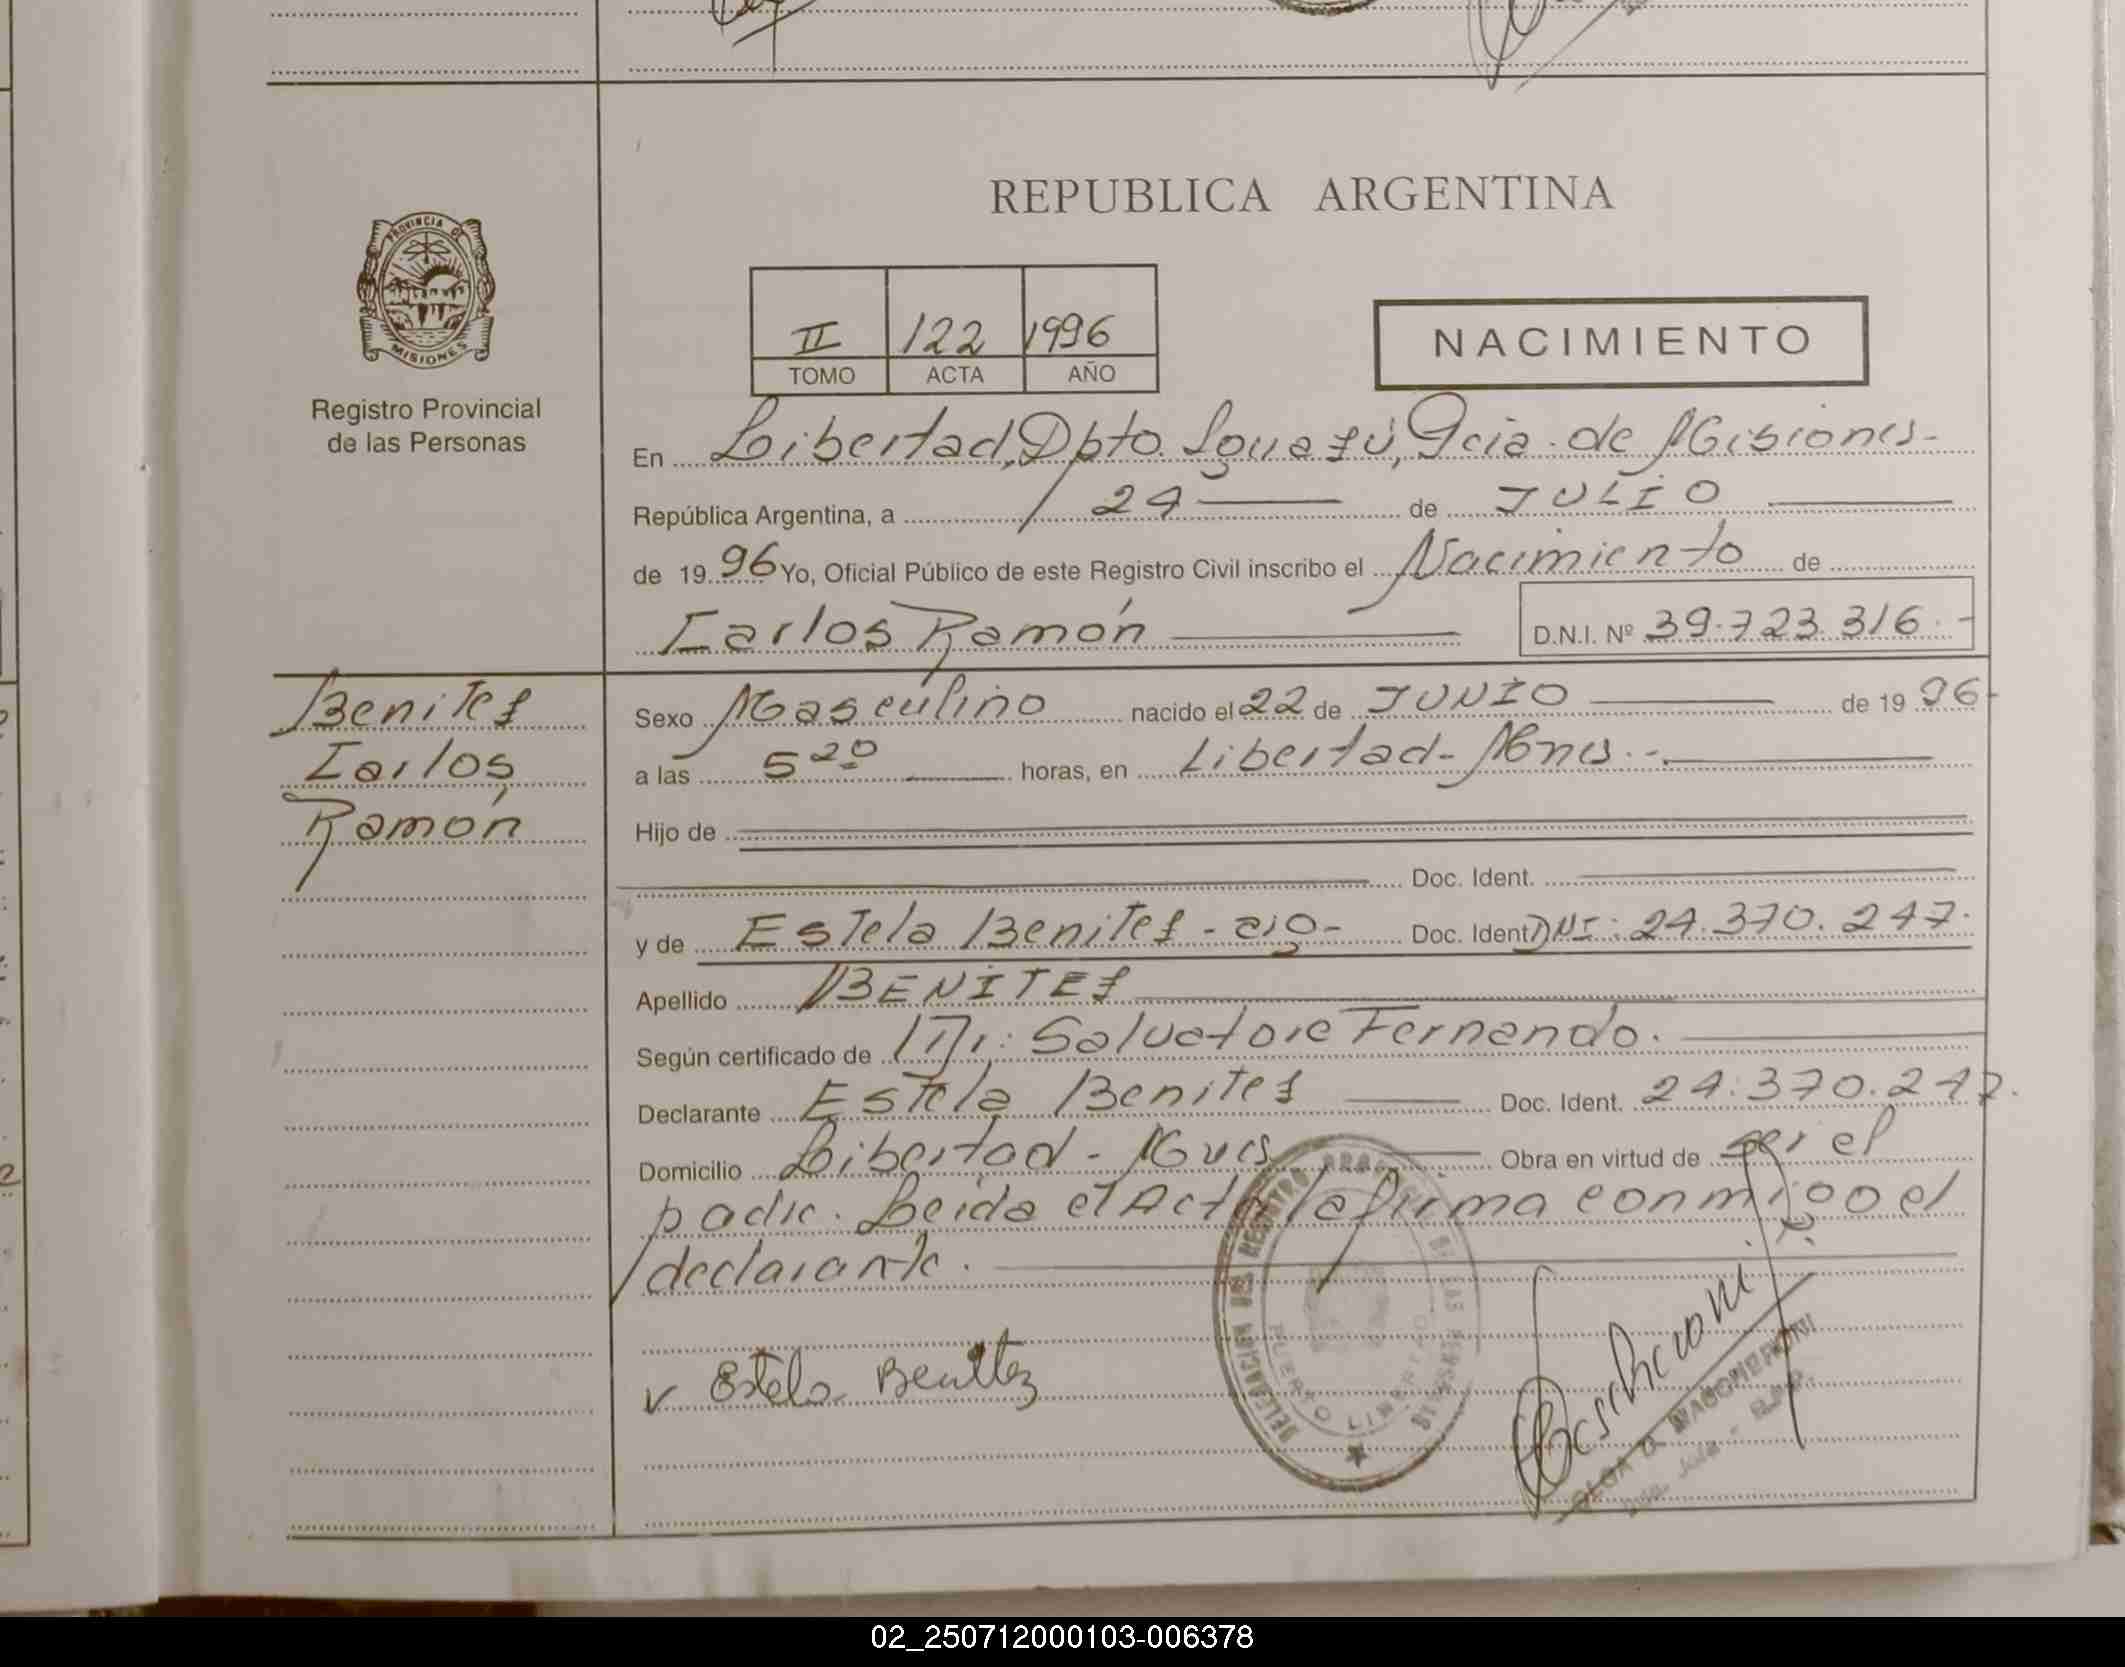 REPUBLICA ARGENTINA
PROVINCIA DE
MISIONES
Registro Provincial
de las Personas
II 122 1996
TOMO ACTA AÑO
NACIMIENTO
En Libertad, Dpto. Iguazú, Pcia. de Misiones.-
República Argentina, a 24 de JULIO
de 1996 Yo, Oficial Público de este Registro Civil inscribo el Nacimiento de
Carlos Ramón D.N.I. Nº 39.723.316.-
Benitez
Carlos
Ramón
Sexo Masculino nacido el 22 de JUNIO de 1996-
a las 5 20 horas, en Libertad-Mnes.-
Hijo de
Doc. Ident.
y de Estela Benitez - Doc. Ident. DNI: 24.370.247.
Apellido BENITEZ
Según certificado de Dr: Salvatore Fernando.
Declarante Estela Benitez Doc. Ident. 24.370.247.
Domicilio Libertad - Obra en virtud de ser el
padre. Leida el Acta la firma conmigo el
declarante.
Estela Benitez
DELEGACION DEL REGISTRO PROVINCIAL DE LAS PERSONAS
PUERTO LIBERTAD
OLGA MASCHERONI
02_250712000103-006378